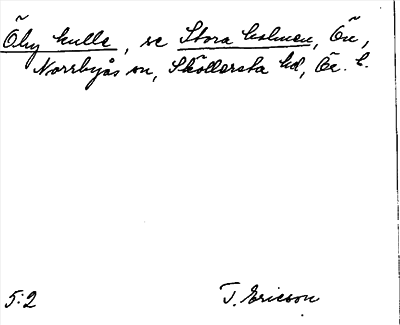 Öby kulle, se Stora holmen, Ön,
Norrbyås sn, Sköllersta hd, Ör. l.
5:2 T. Ericson